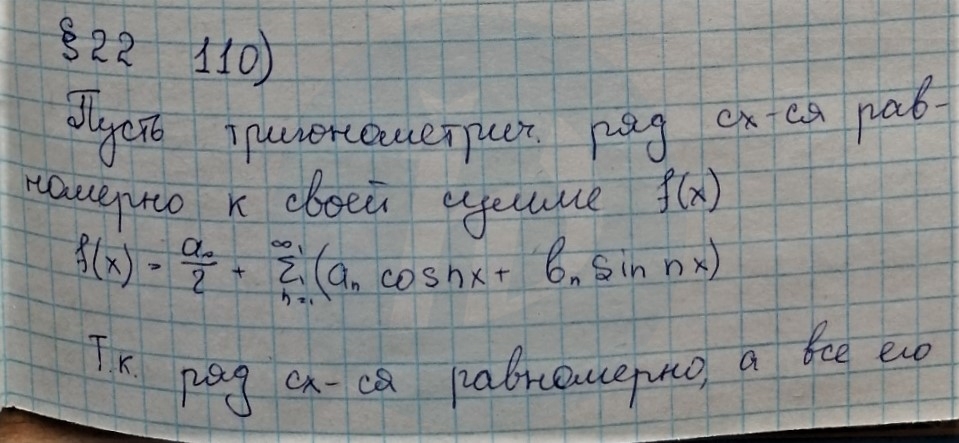 §22 110)
Пусть тригонометрич. ряд сх-ся рав-
номерно к своей сумме f(x)
f(x) = a₀/2 + ∞∑n=1 (aₙ cos nx + bₙ sin nx)
Т.к. ряд сх-ся равномерно, а все его